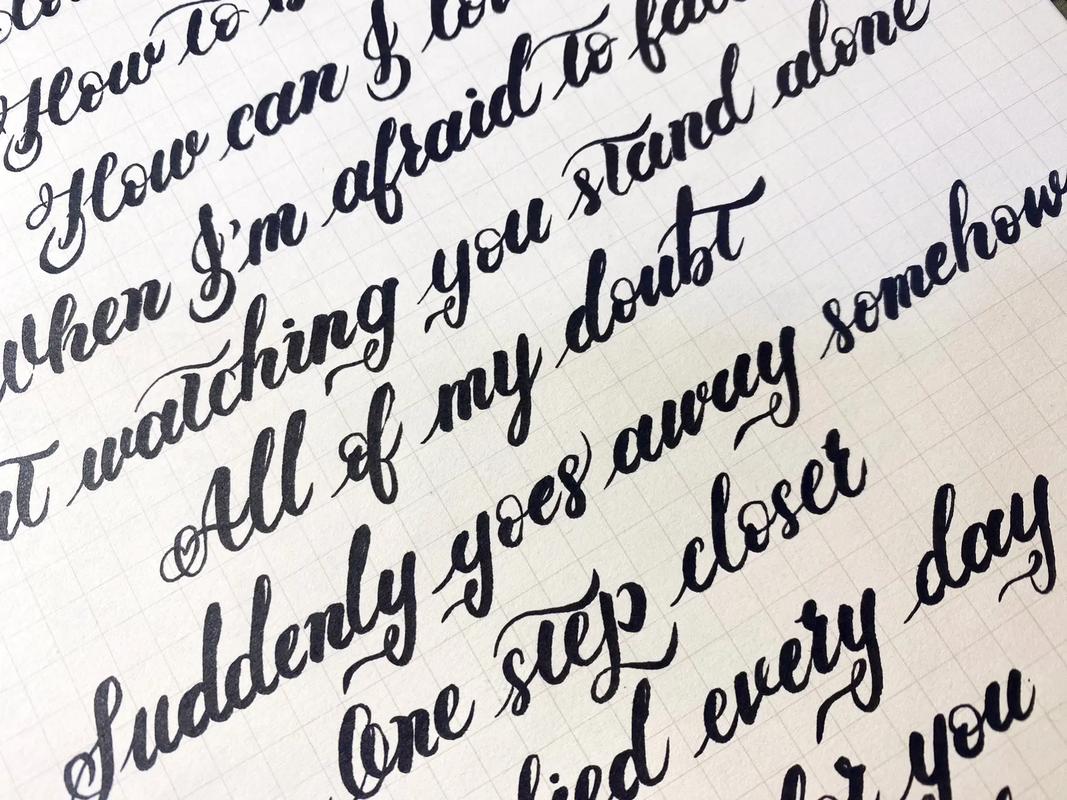 How to
How can I
when I'm afraid to
watching you stand alone
All of my doubt
Suddenly goes away somehow
One step closer
every day
you